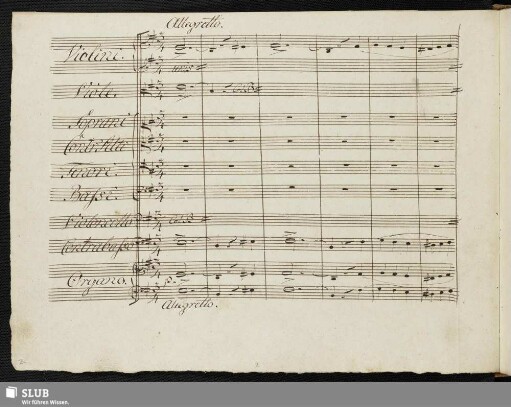 Allegretto.
Violini.
unis
Viole.
Col B
Soprani
Contr'Alti
Tenori.
Bassi.
Violoncello
Col B
Contrabasso
Organo.
p.
Allegretto.
SLUB
Wir führen Wissen.